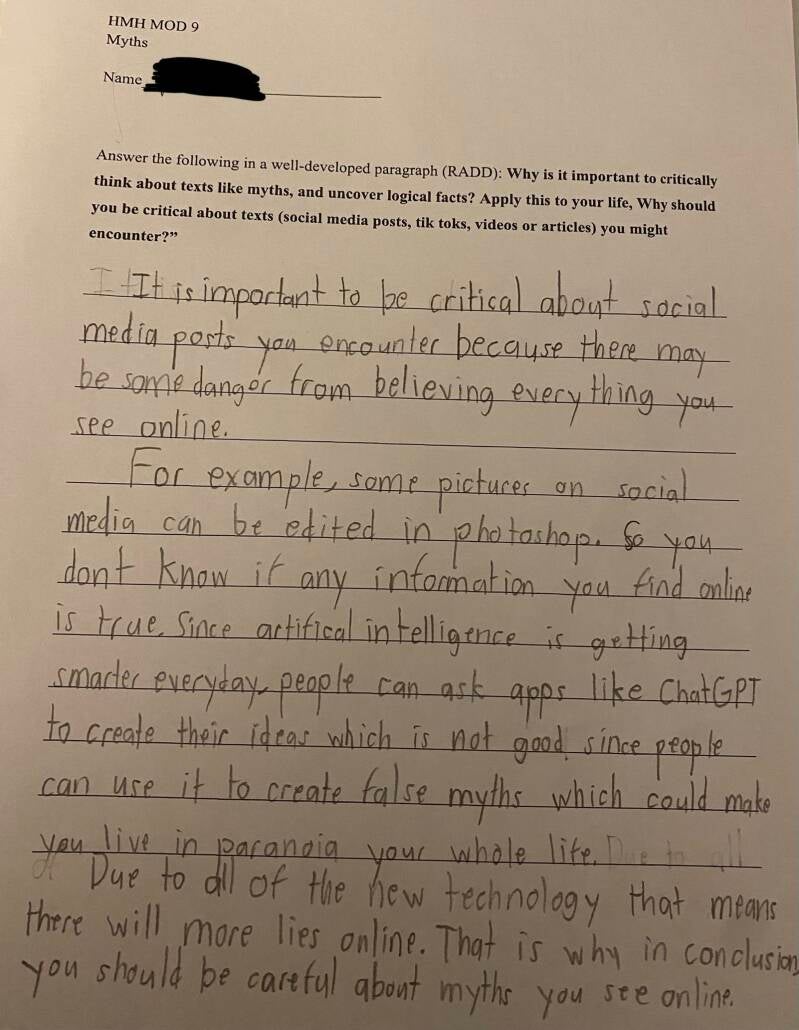 HMH MOD 9
Myths
Name
Answer the following in a well-developed paragraph (RADD): Why is it important to critically
think about texts like myths, and uncover logical facts? Apply this to your life, Why should
you be critical about texts (social media posts, tik toks, videos or articles) you might
encounter?”
It is important to be critical about social
media posts you encounter because there may
be some danger from believing every thing you
see online.
For example, some pictures on social
media can be edited in photoshop. So you
dont know if any information you find online
is true. Since artifical intelligence is getting
smarter everyday, people can ask apps like ChatGPT
to create their ideas which is not good, since people
can use it to create false myths which could make
you live in paranoia your whole life. Due to all
Due to all of the new technology that means
there will more lies online. That is why in conclusion,
you should be careful about myths you see online.